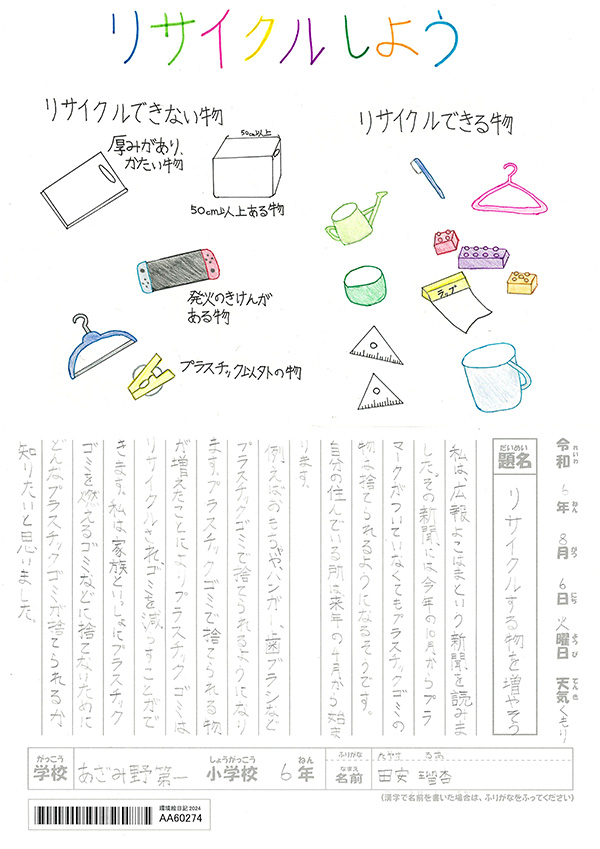 リサイクルしよう
リサイクルできない物
厚みがあり、
かたい物
50cm以上
50cm以上ある物
発火のきけんが
ある物
プラスチック以外の物
リサイクルできる物
ラップ
令和 れいわ 6年 ねん 8月 がつ 6日 にち 火曜日 ようび 天気 てんき くもり
題名 だいめい リサイクルする物を増やそう
私は、広報よこはまという新聞を読みま
した。その新聞にに今年の10月からプラ
マークがついていなくてもプラスチックゴミの
物は捨てられるようになるそうです。
自分の住んでいる所は来年の4月から始ま
ります。
例えばおもちゃや、ハンガー、歯ブラシなど
プラスチックゴミで捨てられるようになり
ます。プラスチックゴミで捨てられる物
が増えたことによりプラスチックゴミは
リサイクルされゴミを減っすことがで
きます。私は家族といっしょにプラスチック
ゴミを燃えるゴミなどに捨てないために
どんなプラスチックゴミが捨てられるか
知りたいと思いました。
学校 がっこう あざみ野第一 小学校 しょうがっこう 6年 ねん
ふりがな たやす るあ
名前 なまえ 田安 瑠杏
(漢字で名前を書いた場合は、ふりがなをふってください)
環境絵日記2024
AA60274